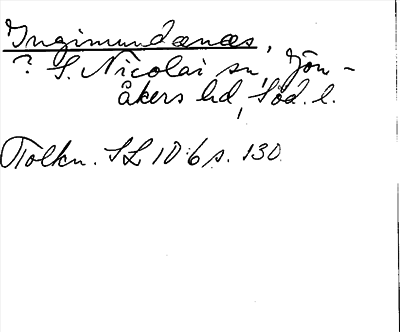 Ingimundænæs,
? S. Nicolai sn, Jön-
åkers hd, Söd. l.
Tolkn. SL 10:6 s. 130.